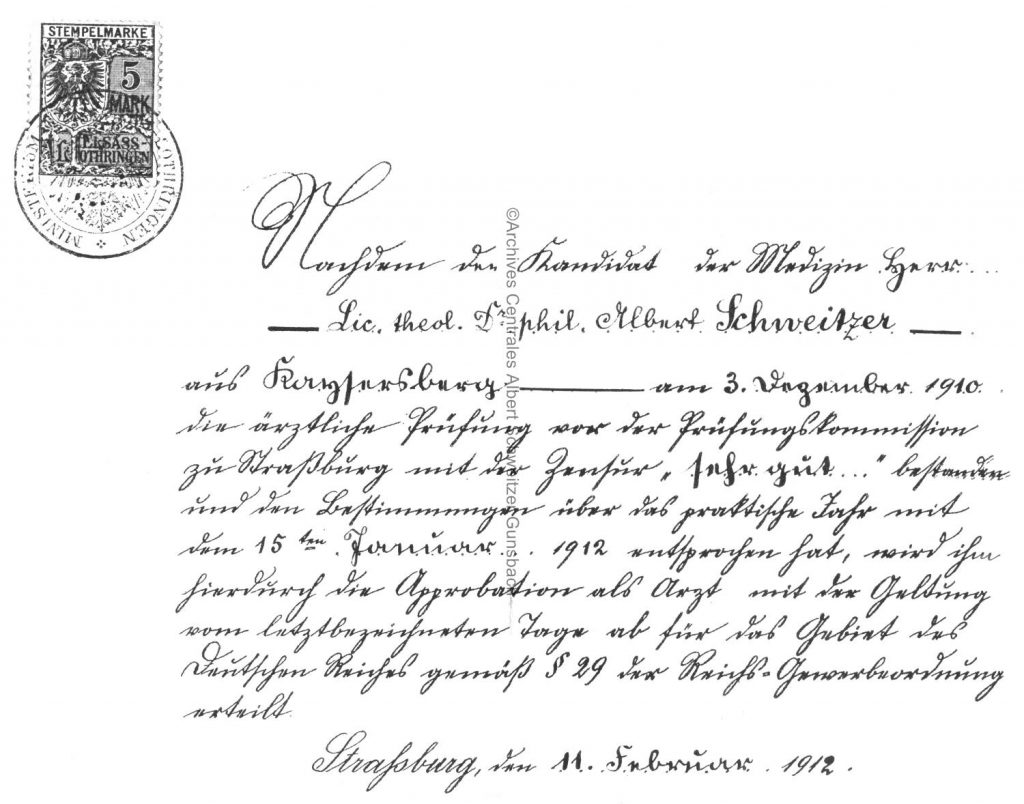 STEMPELMARKE
5
MARK
ELSASS-
LOTHRINGEN
MINISTERIUM LOTHRINGEN
Nachdem der Kandidat der Medizin Herr
Lic. theol. Dr phil. Albert Schweitzer
aus Kaysersberg am 3. Dezember 1910
die ärztliche Prüfung vor der Prüfungskommission
zu Straßburg mit der Zensur „sehr gut..." bestanden
und den Bestimmungen über das praktische Jahr mit
dem 15ten Januar 1912 entsprochen hat, wird ihm
hierdurch die Approbation als Arzt mit der Geltung
vom letztbezeichneten Tage ab für das Gebiet des
Deutschen Reiches gemäß § 29 der Reichs-Gewerbeordnung
erteilt.
Straßburg, den 11. Februar 1912.
©Archives Centrales Albert Schweitzer Gunsbach